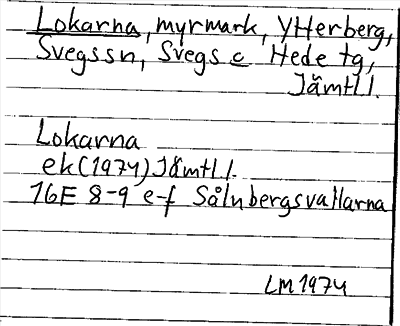 Lokarna, myrmark, Ytterberg,
Svegssn, Svegs c Hede tg,
Jämtl l.
Lokarna
ek (1974) Jämtl l.
16E 8-9 e-f Sålnbergsvallarna
LM 1974